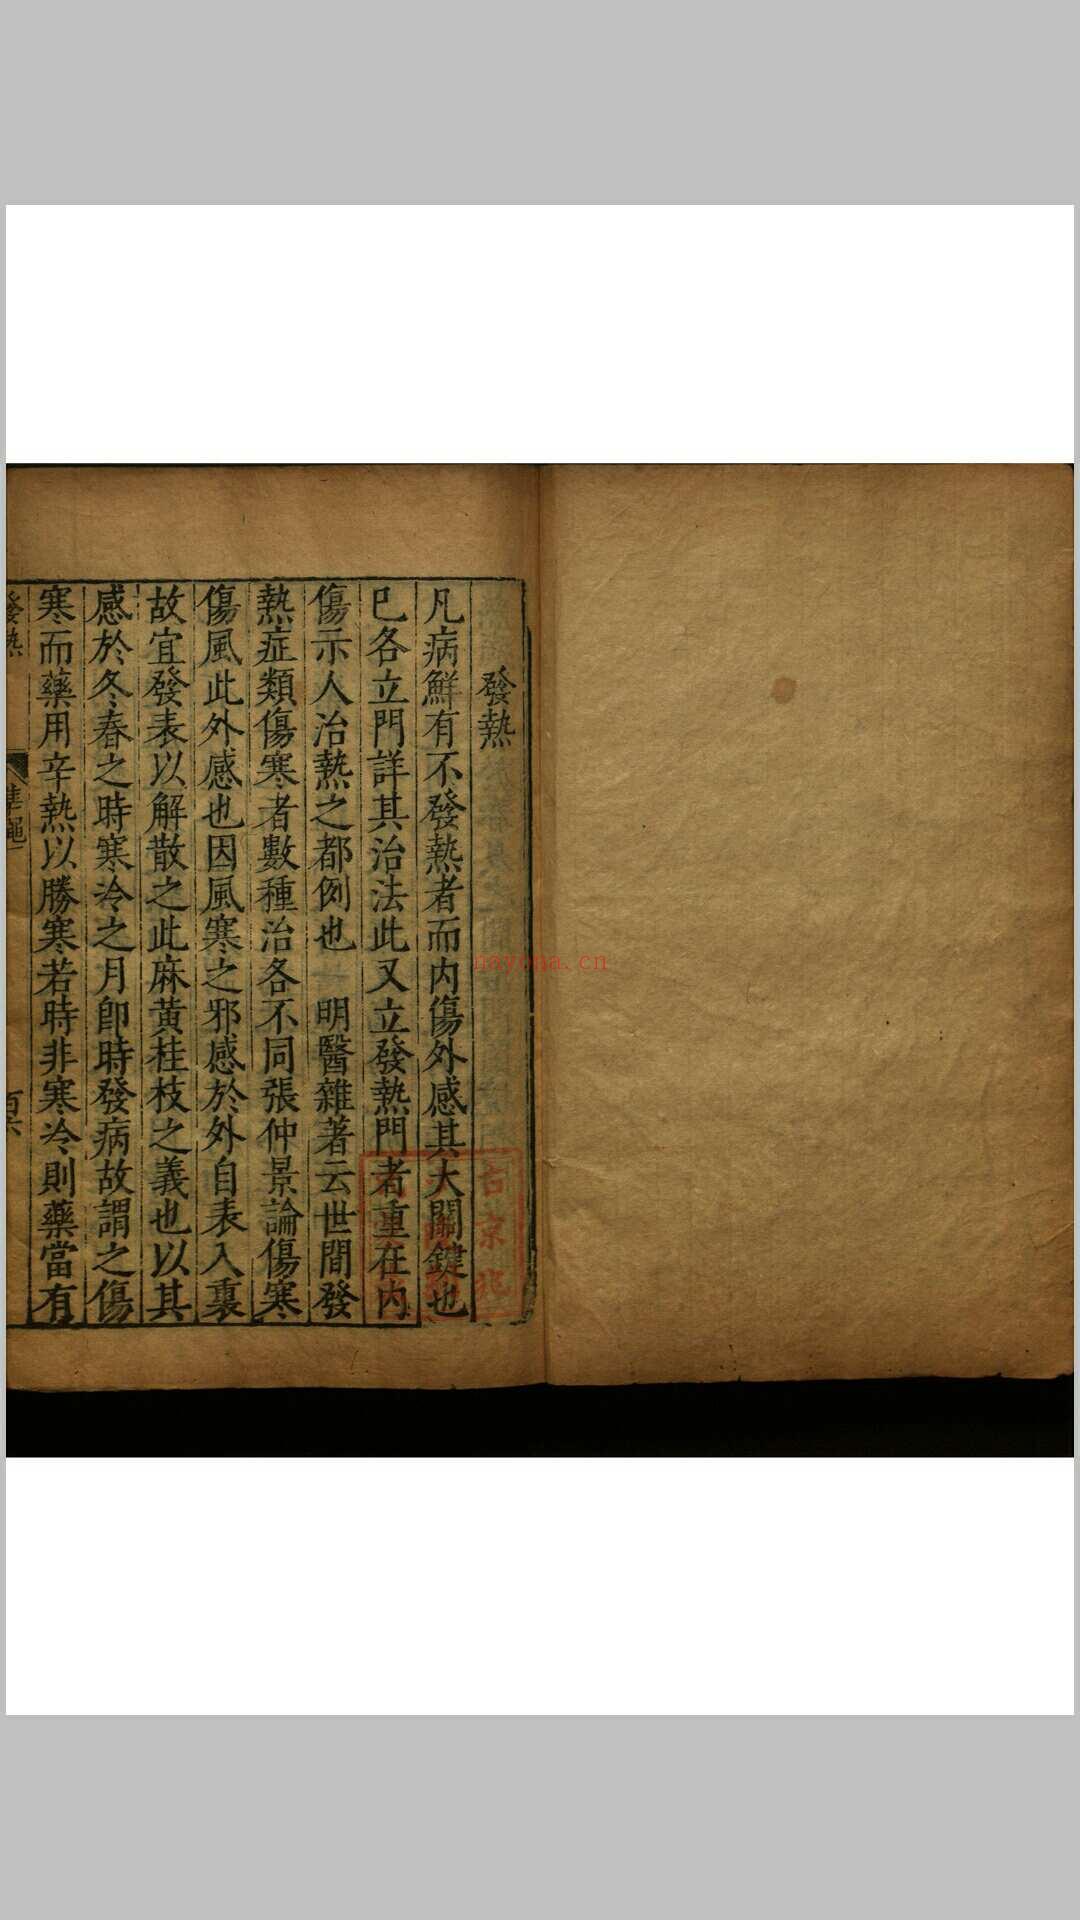 發熱
凡病鮮有不發熱者而内傷外感其大關鍵也
已各立門詳其治法此又立發熱門者重在内
傷示人治熱之都例也　明醫雜著云世間發
熱症類傷寒者數種治各不同張仲景論傷寒
傷風此外感也因風寒之邪感於外自表入裏
故宜發表以解散之此麻黄桂枝之義也以其
感於冬春之時寒冷之月卽時發病故謂之傷
寒而藥用辛熱以勝寒若時非寒冷則藥當有
發熱
準繩
百六
nayona.cn